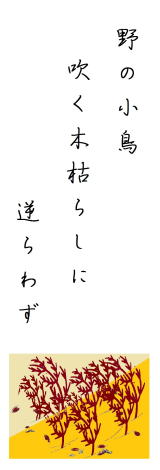 野の小鳥
吹く木枯らしに
逆らわず